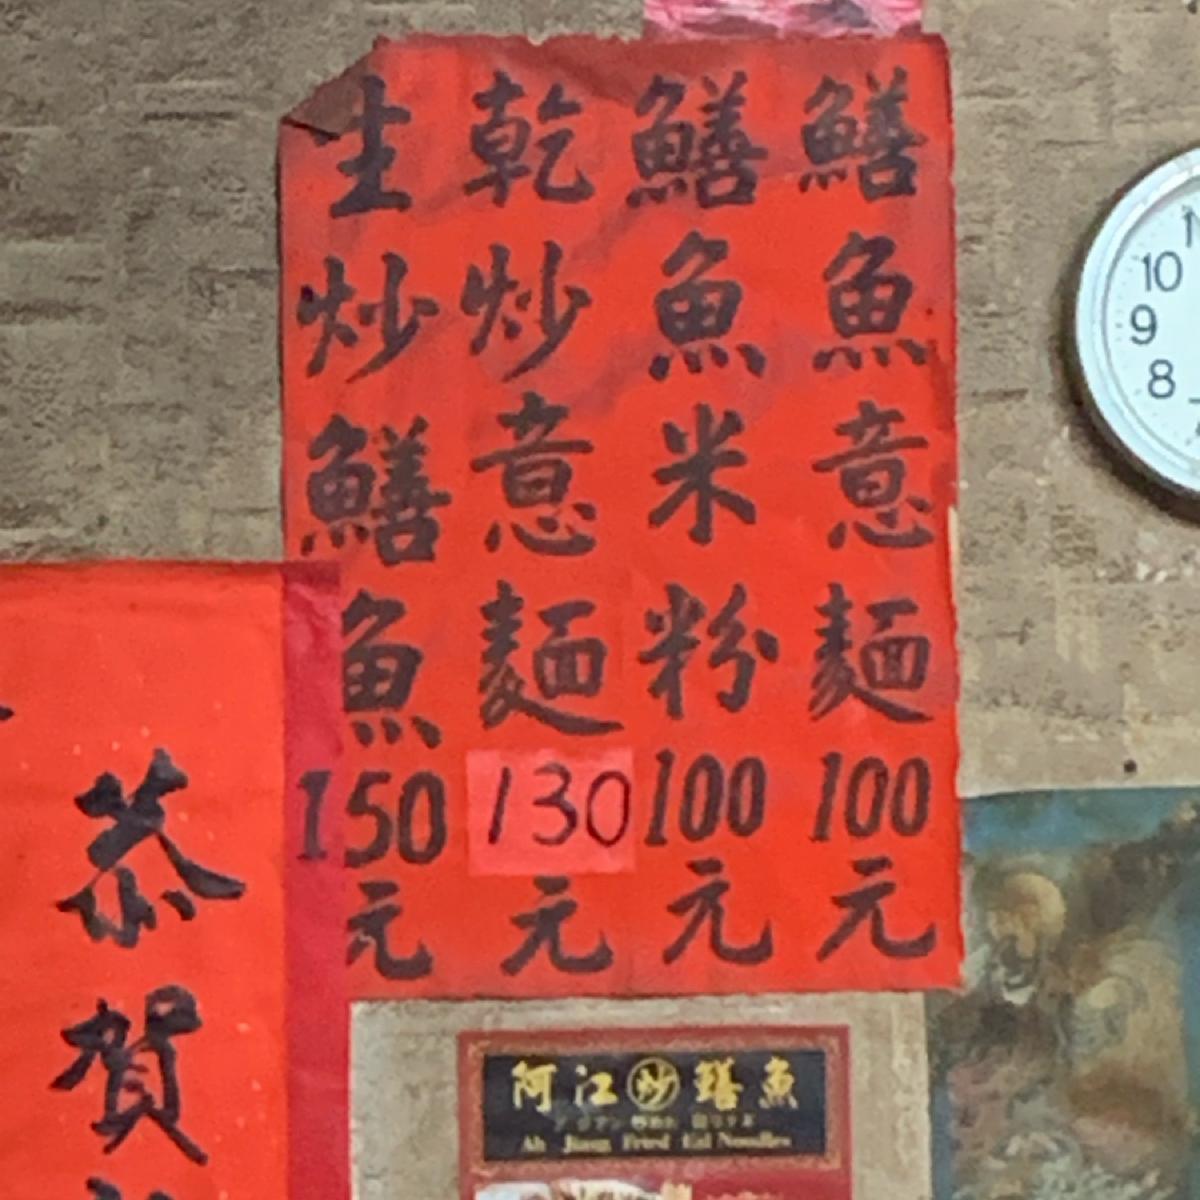 鱔魚意麵100元
鱔魚米粉100元
乾炒意麵130元
生炒鱔魚150元
恭賀
10
9
8
阿江炒鱔魚
Ah Jiang Fried Eel Noodles